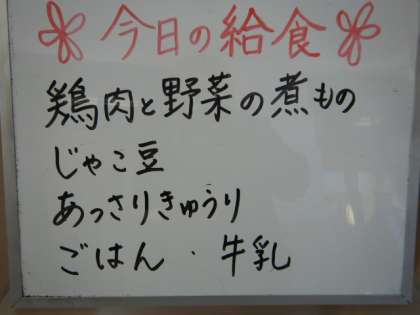 今日の給食
鶏肉と野菜の煮もの
じゃこ豆
あっさりきゅうり
ごはん・牛乳